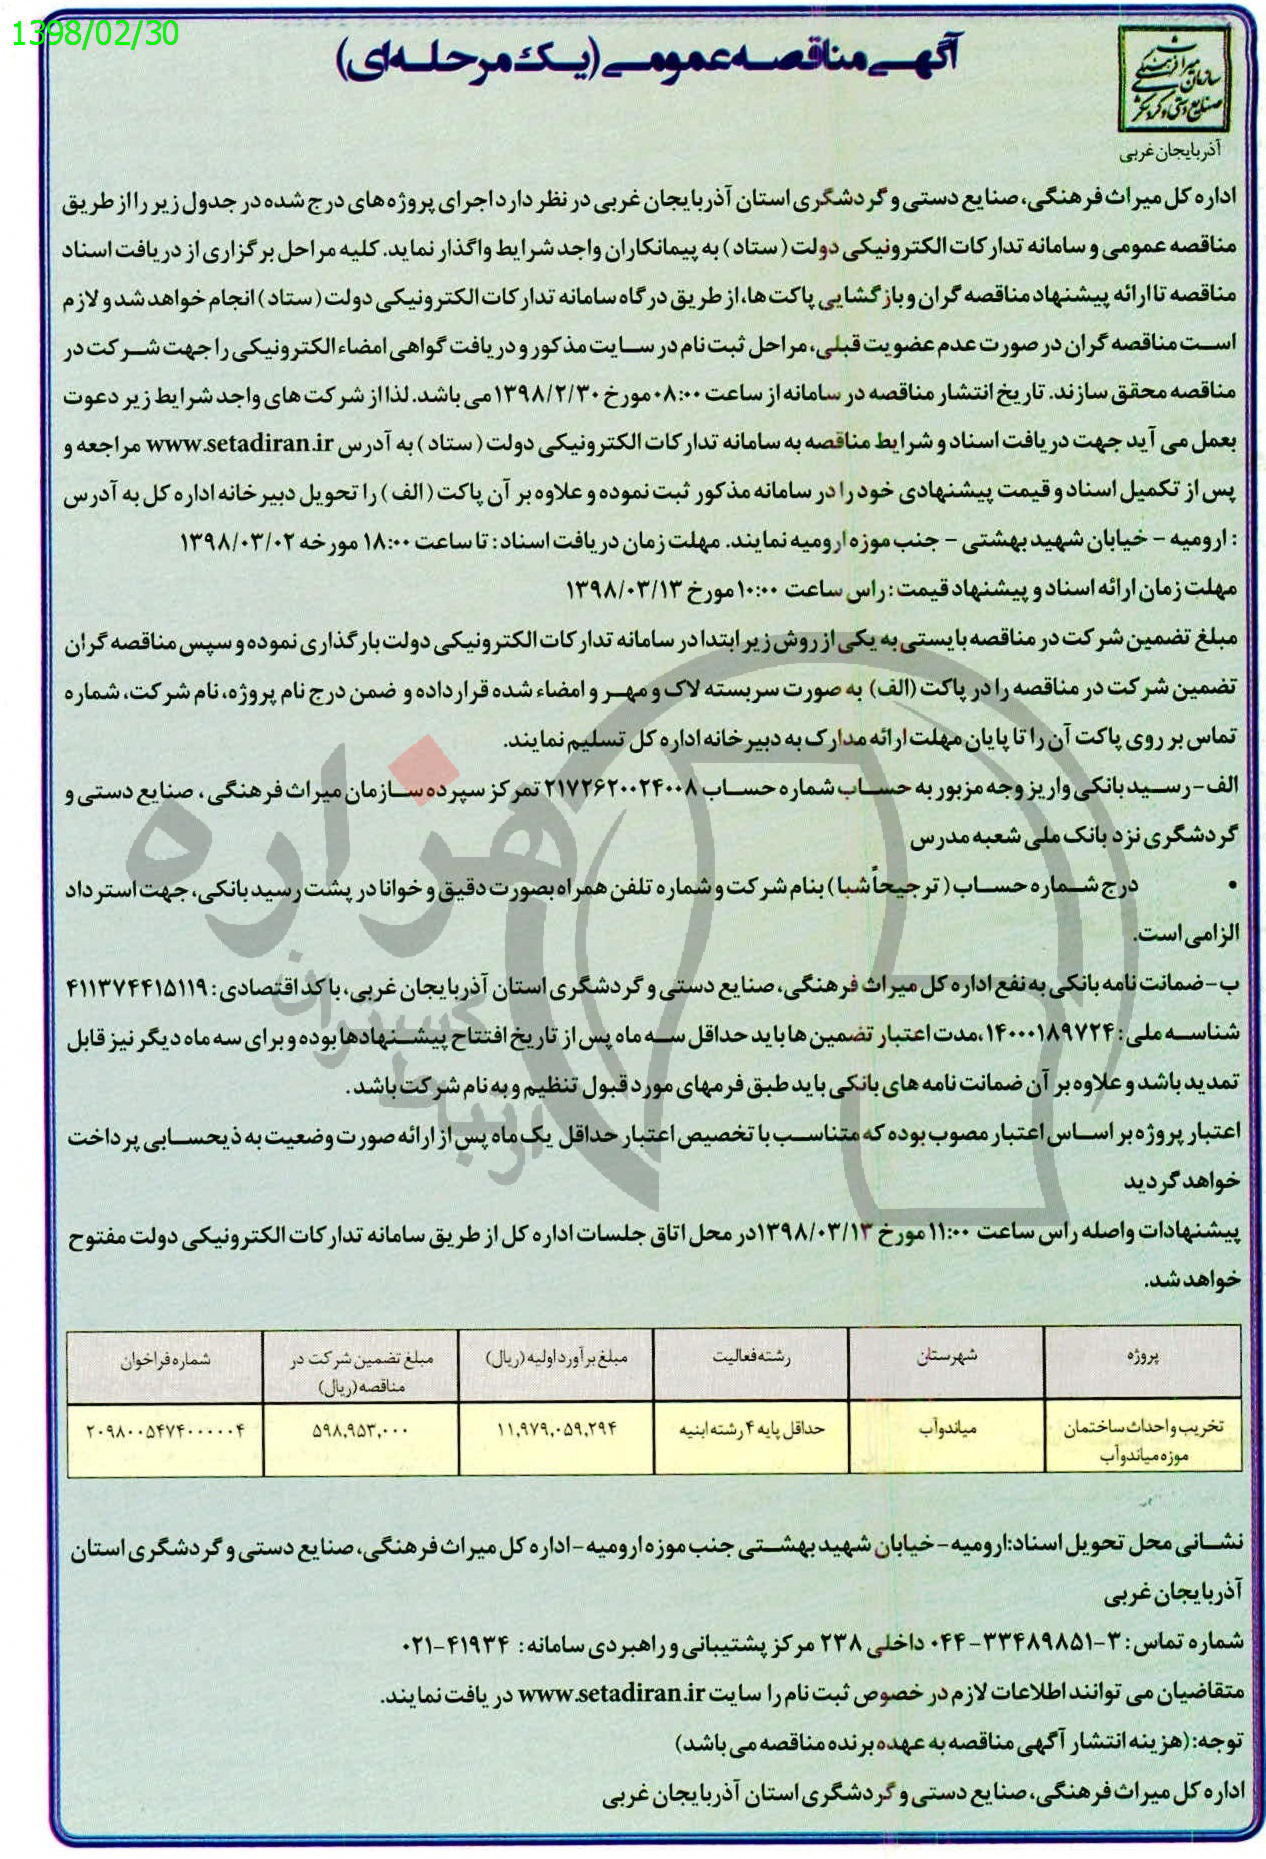 1398/02/30
آگهی مناقصه عمومی (یک مرحله‌ای)
سازمان میراث فرهنگی
صنایع دستی و گردشگری
آذربایجان غربی
اداره کل میراث فرهنگی، صنایع دستی و گردشگری استان آذربایجان غربی در نظر دارد اجرای پروژه های درج شده در جدول زیر را از طریق
مناقصه عمومی و سامانه تدارکات الکترونیکی دولت ( ستاد ) به پیمانکاران واجد شرایط واگذار نماید. کلیه مراحل برگزاری از دریافت اسناد
مناقصه تا ارائه پیشنهاد مناقصه گران و بازگشایی پاکت ها، از طریق درگاه سامانه تدارکات الکترونیکی دولت ( ستاد ) انجام خواهد شد و لازم
است مناقصه گران در صورت عدم عضویت قبلی، مراحل ثبت نام در سایت مذکور و دریافت گواهی امضاء الکترونیکی را جهت شرکت در
مناقصه محقق سازند. تاریخ انتشار مناقصه در سامانه از ساعت ۰۸:۰۰ مورخ ۱۳۹۸/۲/۳۰ می باشد. لذا از شرکت های واجد شرایط زیر دعوت
بعمل می آید جهت دریافت اسناد و شرایط مناقصه به سامانه تدارکات الکترونیکی دولت ( ستاد ) به آدرس www.setadiran.ir مراجعه و
پس از تکمیل اسناد و قیمت پیشنهادی خود را در سامانه مذکور ثبت نموده و علاوه بر آن پاکت ( الف ) را تحویل دبیرخانه اداره کل به آدرس
: ارومیه - خیابان شهید بهشتی - جنب موزه ارومیه نمایند. مهلت زمان دریافت اسناد : تا ساعت ۱۸:۰۰ مورخه ۱۳۹۸/۰۳/۰۲
مهلت زمان ارائه اسناد و پیشنهاد قیمت : راس ساعت ۱۰:۰۰ مورخ ۱۳۹۸/۰۳/۱۳
مبلغ تضمین شرکت در مناقصه بایستی به یکی از روش زیر ابتدا در سامانه تدارکات الکترونیکی دولت بارگذاری نموده و سپس مناقصه گران
تضمین شرکت در مناقصه را در پاکت (الف) به صورت سربسته لاک و مهر و امضاء شده قرار داده و ضمن درج نام پروژه، نام شرکت، شماره
تماس بر روی پاکت آن را تا پایان مهلت ارائه مدارک به دبیرخانه اداره کل تسلیم نمایند.
الف- رسید بانکی واریز وجه مزبور به حساب شماره حساب ۲۱۷۲۶۲۰۰۲۴۰۰۸ تمرکز سپرده سازمان میراث فرهنگی ، صنایع دستی و
گردشگری نزد بانک ملی شعبه مدرس
• درج شماره حساب ( ترجیحاً شبا ) بنام شرکت و شماره تلفن همراه بصورت دقیق و خوانا در پشت رسید بانکی، جهت استرداد
الزامی است.
ب- ضمانت نامه بانکی به نفع اداره کل میراث فرهنگی، صنایع دستی و گردشگری استان آذربایجان غربی، با کد اقتصادی : ۴۱۱۳۷۴۴۱۵۱۱۹
شناسه ملی : ۱۴۰۰۰۱۸۹۷۲۴ ،مدت اعتبار تضمین ها باید حداقل سه ماه پس از تاریخ افتتاح پیشنهادها بوده و برای سه ماه دیگر نیز قابل
تمدید باشد و علاوه بر آن ضمانت نامه های بانکی باید طبق فرمهای مورد قبول تنظیم و به نام شرکت باشد .
اعتبار پروژه بر اساس اعتبار مصوب بوده که متناسب با تخصیص اعتبار حداقل یک ماه پس از ارائه صورت وضعیت به ذیحسابی پرداخت
خواهد گردید
پیشنهادات واصله راس ساعت ۱۱:۰۰ مورخ ۱۳۹۸/۰۳/۱۳ در محل اتاق جلسات اداره کل از طریق سامانه تدارکات الکترونیکی دولت مفتوح
خواهد شد.
پروژه شهرستان رشته فعالیت مبلغ برآورد اولیه (ریال) مبلغ تضمین شرکت در مناقصه (ریال) شماره فراخوان
تخریب و احداث ساختمان موزه میاندوآب میاندوآب حداقل پایه ۴ رشته ابنیه ۱۱,۹۷۹,۰۵۹,۲۹۴ ۵۹۸,۹۵۳,۰۰۰ ۲۰۹۸۰۰۵۴۷۴۰۰۰۰۰۴
نشانی محل تحویل اسناد:ارومیه - خیابان شهید بهشتی جنب موزه ارومیه - اداره کل میراث فرهنگی، صنایع دستی و گردشگری استان
آذربایجان غربی
شماره تماس : ۳-۳۳۴۸۹۸۵۱-۰۴۴ داخلی ۲۳۸ مرکز پشتیبانی و راهبردی سامانه : ۴۱۹۳۴-۰۲۱
متقاضیان می توانند اطلاعات لازم در خصوص ثبت نام را سایت www.setadiran.ir دریافت نمایند.
توجه: (هزینه انتشار آگهی مناقصه به عهده برنده مناقصه می باشد)
اداره کل میراث فرهنگی، صنایع دستی و گردشگری استان آذربایجان غربی
هزاره